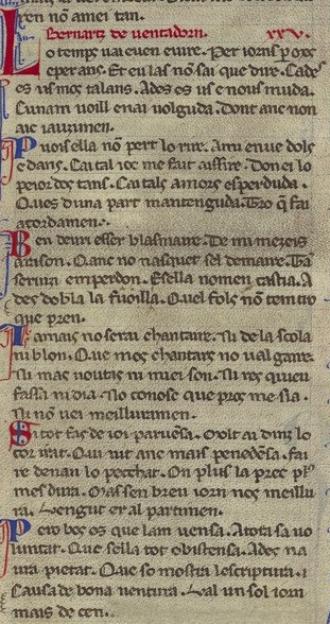 ren nõ amei tan.
Bernartz de uentadorn. XXV.
Lo temps uai e uen e uire. Per iorns p̱ mes
e per ans. Et eu las nõ sai que dire. Cades
es us mos talans. Ades es us e nouis muda.
Cunam uoill en ai uolguda. Dont anc non
aic iauzimen.
Puois ella nõ pert lo rire. A mi en ue dols
e dans. Cai tal ioc me fait assire. Don ei lo
peior dos tans. Cai tals amors es perduda.
Ques duna part mantenguda. Tro q̃ fai
acordamen.
Ben deuri esser blasmaire. De mi mezeis
a raison. Canc no nasquet sel de maire. Tã
seruiu en perdon. E sella no men castia. A
des dobla la fuoilla. Quel fols nõ tem tro
que pren.
Ia mais no serai chantaire. Ni de la scola
niblon. Que mos chantars no ual gaire.
Ni mas uoutas ni miei son. Ni res quieu
fassa ni dia. No conosc que pros me sia.
Ni nõ uei meilluramen.
Si tot fas de ioi paruẽsa. Molt ai dinz lo
cor irat. Qui uit anc mais penedẽsa. Fai
re denan lo pecchat. On plus la prec pl9
mes dura. Mas sen breu iorn nos meillu
ra. Vengut er al partimen.
Pero bes es que lam uensa. A tota sa uo
luntat. Que sella tot obistensa. Ades na
ura pietat. Que so mostra lescriptura.
Causa de bona uentura. Val un sol iorn
mais de cen.